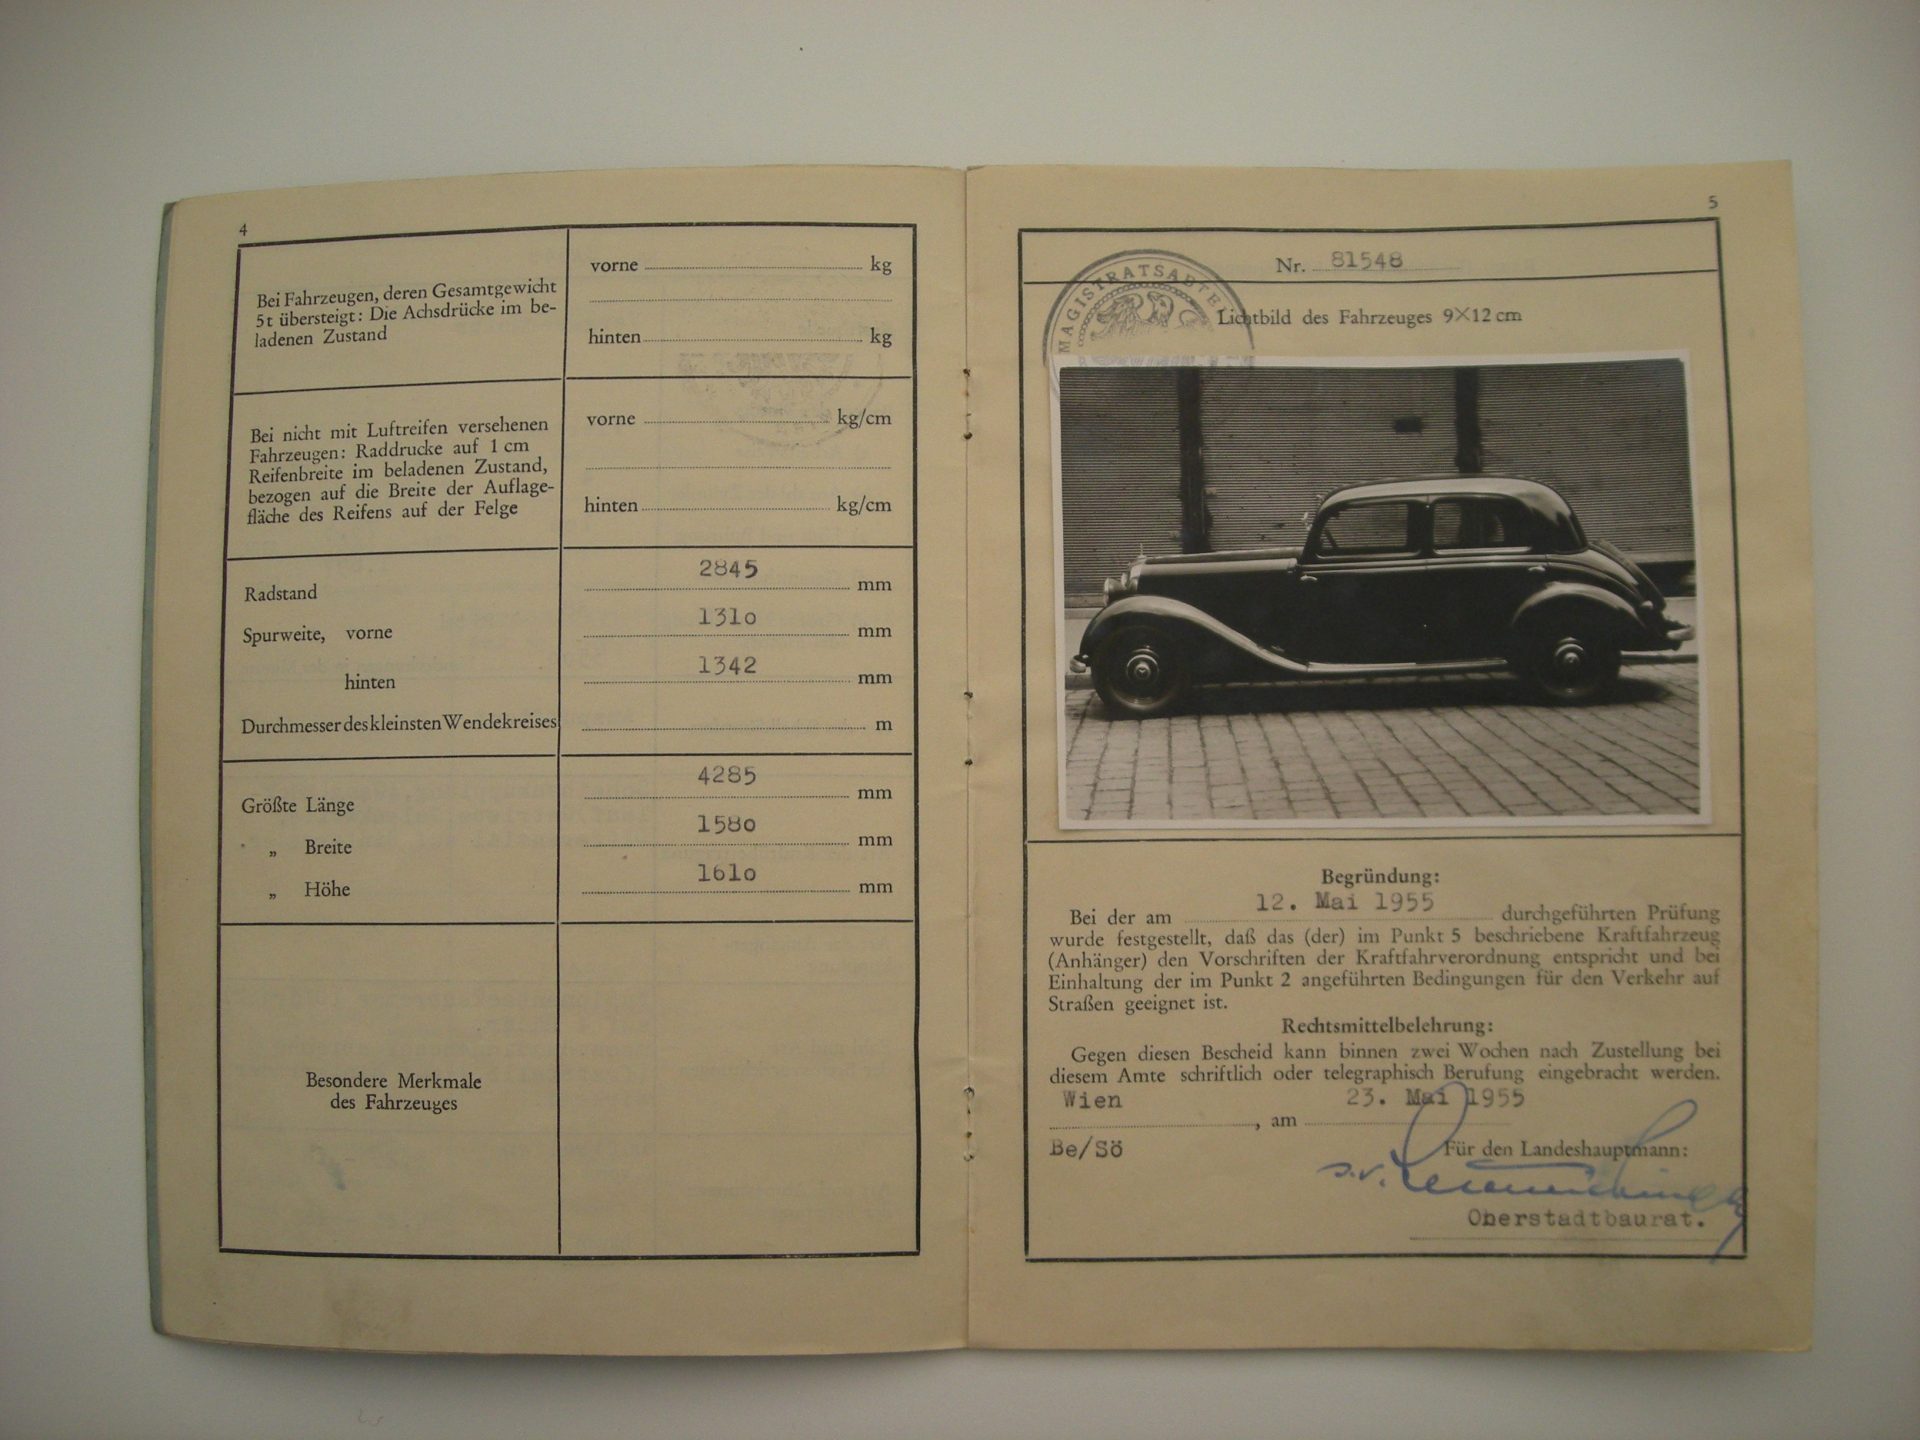 4
Bei Fahrzeugen, deren Gesamtgewicht
5t übersteigt: Die Achsdrücke im be-
ladenen Zustand
vorne kg
hinten kg
Bei nicht mit Luftreifen versehenen
Fahrzeugen: Raddrucke auf 1 cm
Reifenbreite im beladenen Zustand,
bezogen auf die Breite der Auflage-
fläche des Reifens auf der Felge
vorne kg/cm
hinten kg/cm
Radstand 2845 mm
Spurweite, vorne 1310 mm
hinten 1342 mm
Durchmesser des kleinsten Wendekreises m
Größte Länge 4285 mm
„ Breite 1580 mm
„ Höhe 1610 mm
Besondere Merkmale
des Fahrzeuges
5
Nr. 81548
MAGISTRATSABTEI
Lichtbild des Fahrzeuges 9×12 cm
Begründung:
Bei der am 12. Mai 1955 durchgeführten Prüfung
wurde festgestellt, daß das (der) im Punkt 5 beschriebene Kraftfahrzeug
(Anhänger) den Vorschriften der Kraftfahrverordnung entspricht und bei
Einhaltung der im Punkt 2 angeführten Bedingungen für den Verkehr auf
Straßen geeignet ist.
Rechtsmittelbelehrung:
Gegen diesen Bescheid kann binnen zwei Wochen nach Zustellung bei
diesem Amte schriftlich oder telegraphisch Berufung eingebracht werden.
Wien, am 23. Mai 1955
Be/Sö
Für den Landeshauptmann:
Oberstadtbaurat.